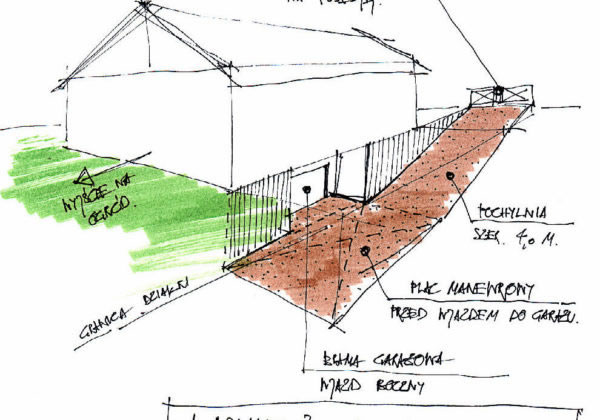 WYJŚCIE NA
OGRÓD
POCHYLNIA
SZER. 4,0 M.
GRANICA DZIAŁKI
PLAC MANEWROWY
PRZED WJAZDEM DO GARAŻU.
BRAMA GARAŻOWA
WJAZD BOCZNY